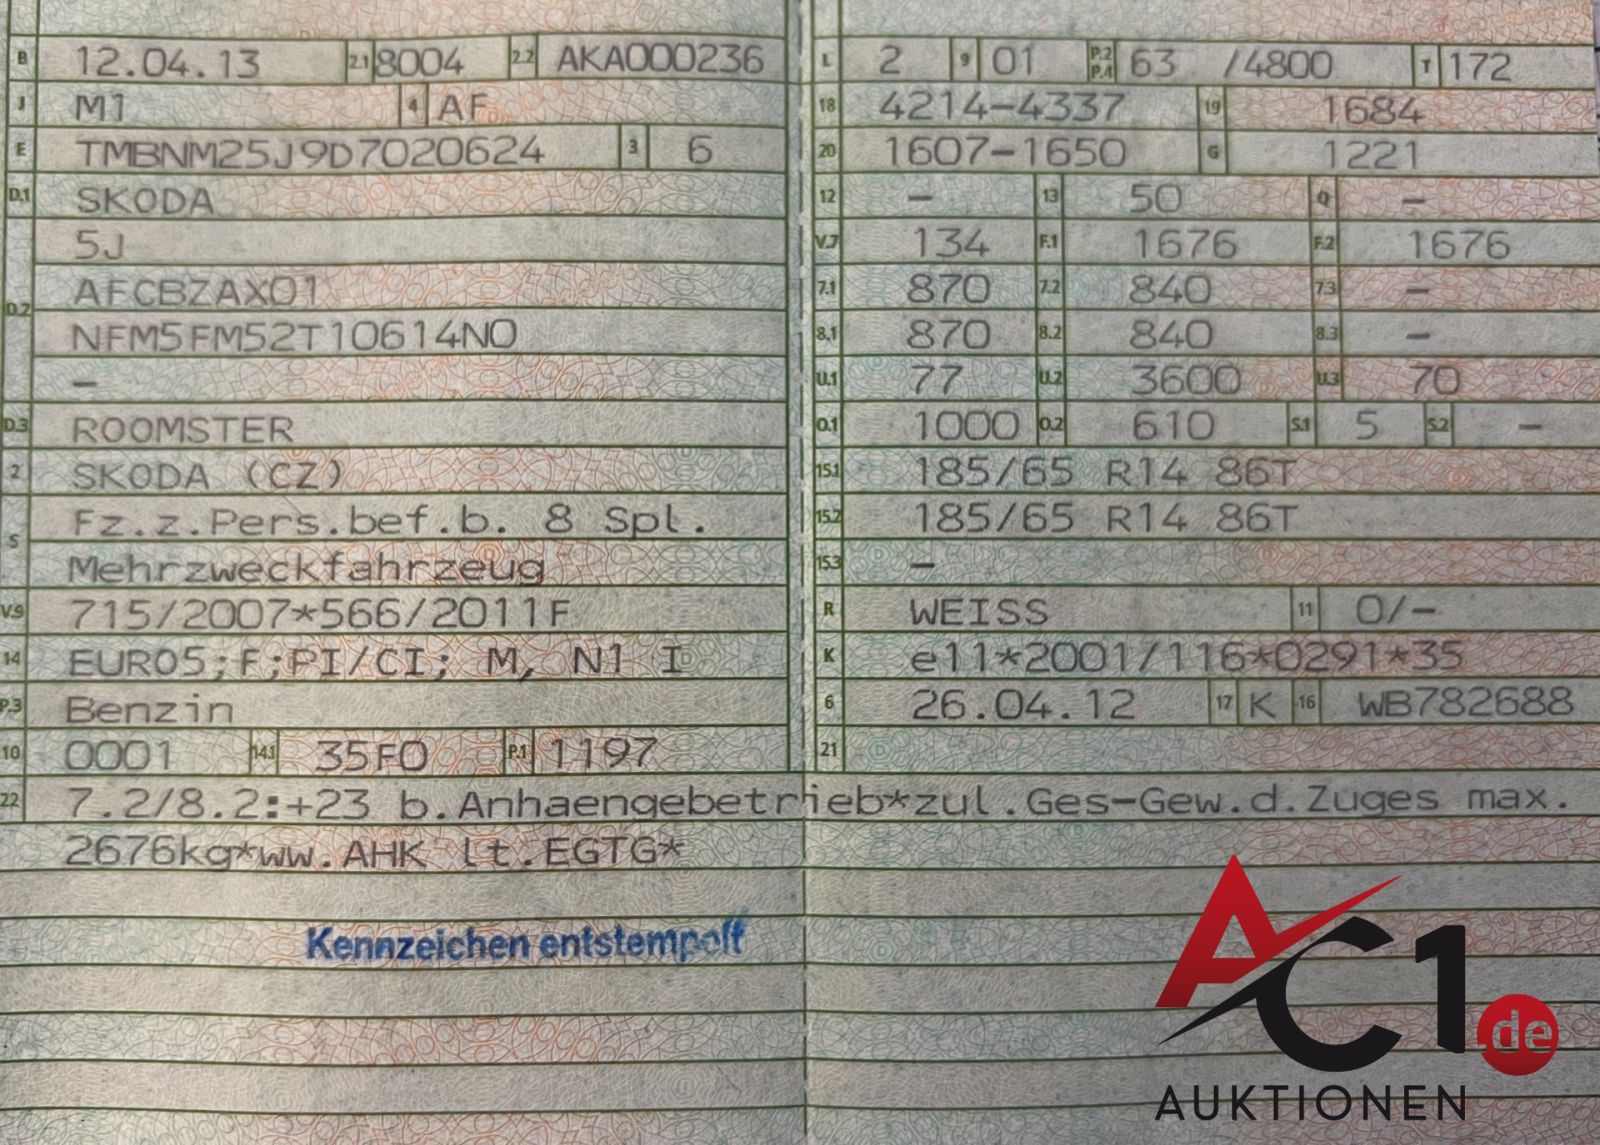 B 12.04.13 2.1 8004 2.2 AKA000236
J M1 4 AF
E TMBNM25J9D7020624 3 6
D.1 SKODA
5J
D.2 AFCBZAX01
NFM5FM52T10614NO
–
D.3 ROOMSTER
2 SKODA (CZ)
Fz.z.Pers.bef.b. 8 Spl.
5 Mehrzweckfahrzeug
V.9 715/2007*566/2011F
14 EURO5;F;PI/CI; M, N1 I
P.3 Benzin
10 0001 14.1 35F0 P.1 1197
L 2 9 01 P.2 P.4 63 /4800 T 172
18 4214-4337 19 1684
20 1607-1650 G 1221
12 – 13 50 Q –
V.7 134 F.1 1676 F.2 1676
7.1 870 7.2 840 7.3 –
8.1 870 8.2 840 8.3 –
U.1 77 U.2 3600 U.3 70
O.1 1000 O.2 610 S.1 5 S.2 –
15.1 185/65 R14 86T
15.2 185/65 R14 86T
15.3 –
R WEISS 11 0/-
K e11*2001/116*0291*35
6 26.04.12 17 K 16 WB782688
21
22 7.2/8.2:+23 b.Anhaengebetrieb*zul.Ges-Gew.d.Zuges max.
2676kg*ww.AHK lt.EGTG*
Kennzeichen entstempelt
AC1.de
AUKTIONEN